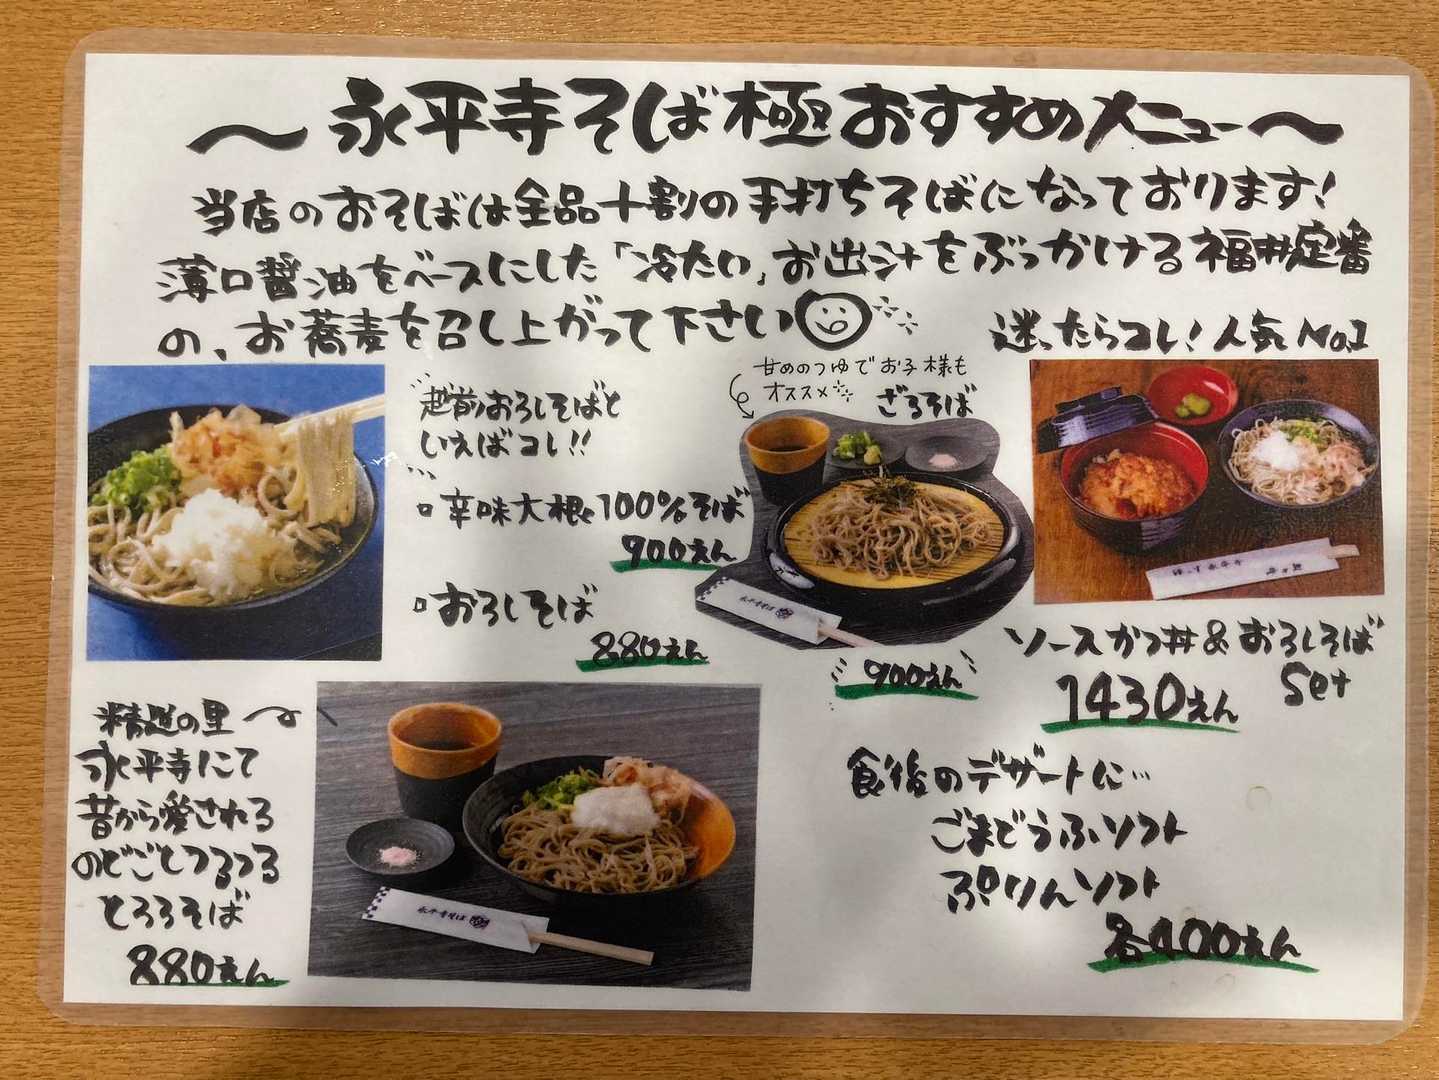 〜永平寺そば極おすすめメニュー〜
当店のおそばは全品十割の手打ちそばになっております!
薄口醤油をベースにした「冷たい」お出汁をぶっかける福井定番
の、お蕎麦を召し上がって下さい
迷ったらコレ!人気No.1
甘めのつゆでお子様も
オススメ
ざるそば
越前おろしそばと
いえばコレ!!
辛味大根100%そば
900えん
おろしそば
880えん
永平寺そば
900えん
ソースかつ丼&おろしそば
Set
1430えん
精進の里
永平寺にて
昔から愛される
のどごしつるつる
とろろそば
880えん
永平寺そば
食後のデザートに…
ごまどうふソフト
ぷりんソフト
各400えん